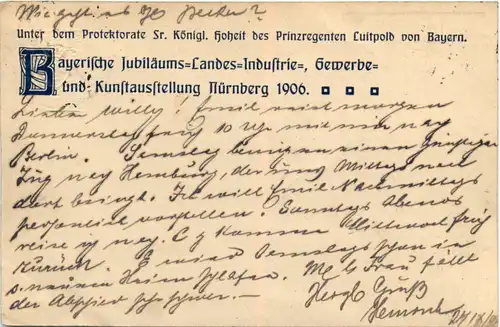 Wie geht es
Unter dem Protektorate Sr. Königl. Hoheit des Prinzregenten Luitpold von Bayern.
Bayerische Jubiläums=Landes=Industrie=, Gewerbe=
und=Kunstausstellung Nürnberg 1906.
Lieber Willy! Emil reist morgen
Donnerstag früh 10 Uhr mit mir nach
Berlin. Samstag einen
Zug nach Hamburg, der uns Mittags nach
dort bringt. Ich will Emil Nachmittags
persönlich vorstellen. Sonntags Abends
reise ich nach C. & komme Mittwoch früh
zurück. E. wird Samstags schon in
s. neuen Heim schlafen. Frau fällt
der Abschied schwer.
Herzl. Gruß